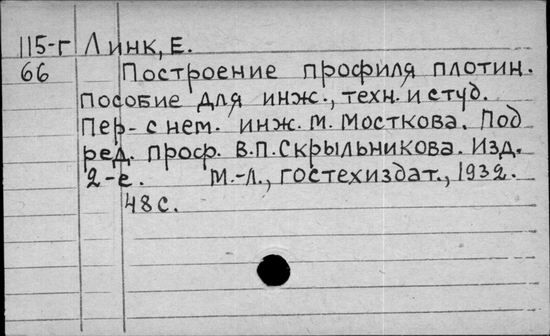 115-г Линк, Е.
66 Построение профиля плотин.
Пособие для инж., техн. и студ.
Пер. с нем. инж. М. Мосткова. Под
ред. проф. В.П. Скрыльникова. Изд.
2-е. М.-Л., гостехиздат., 1932.
48 с.